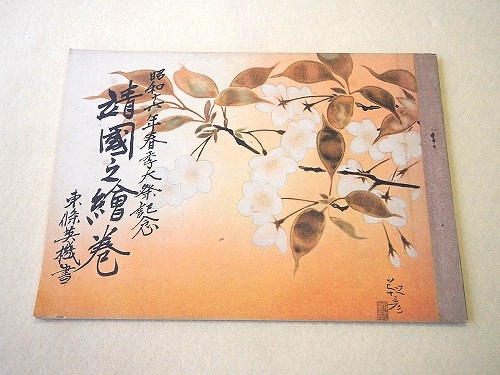 昭和十六年春季大祭記念
靖國之繪巻
東條英機書